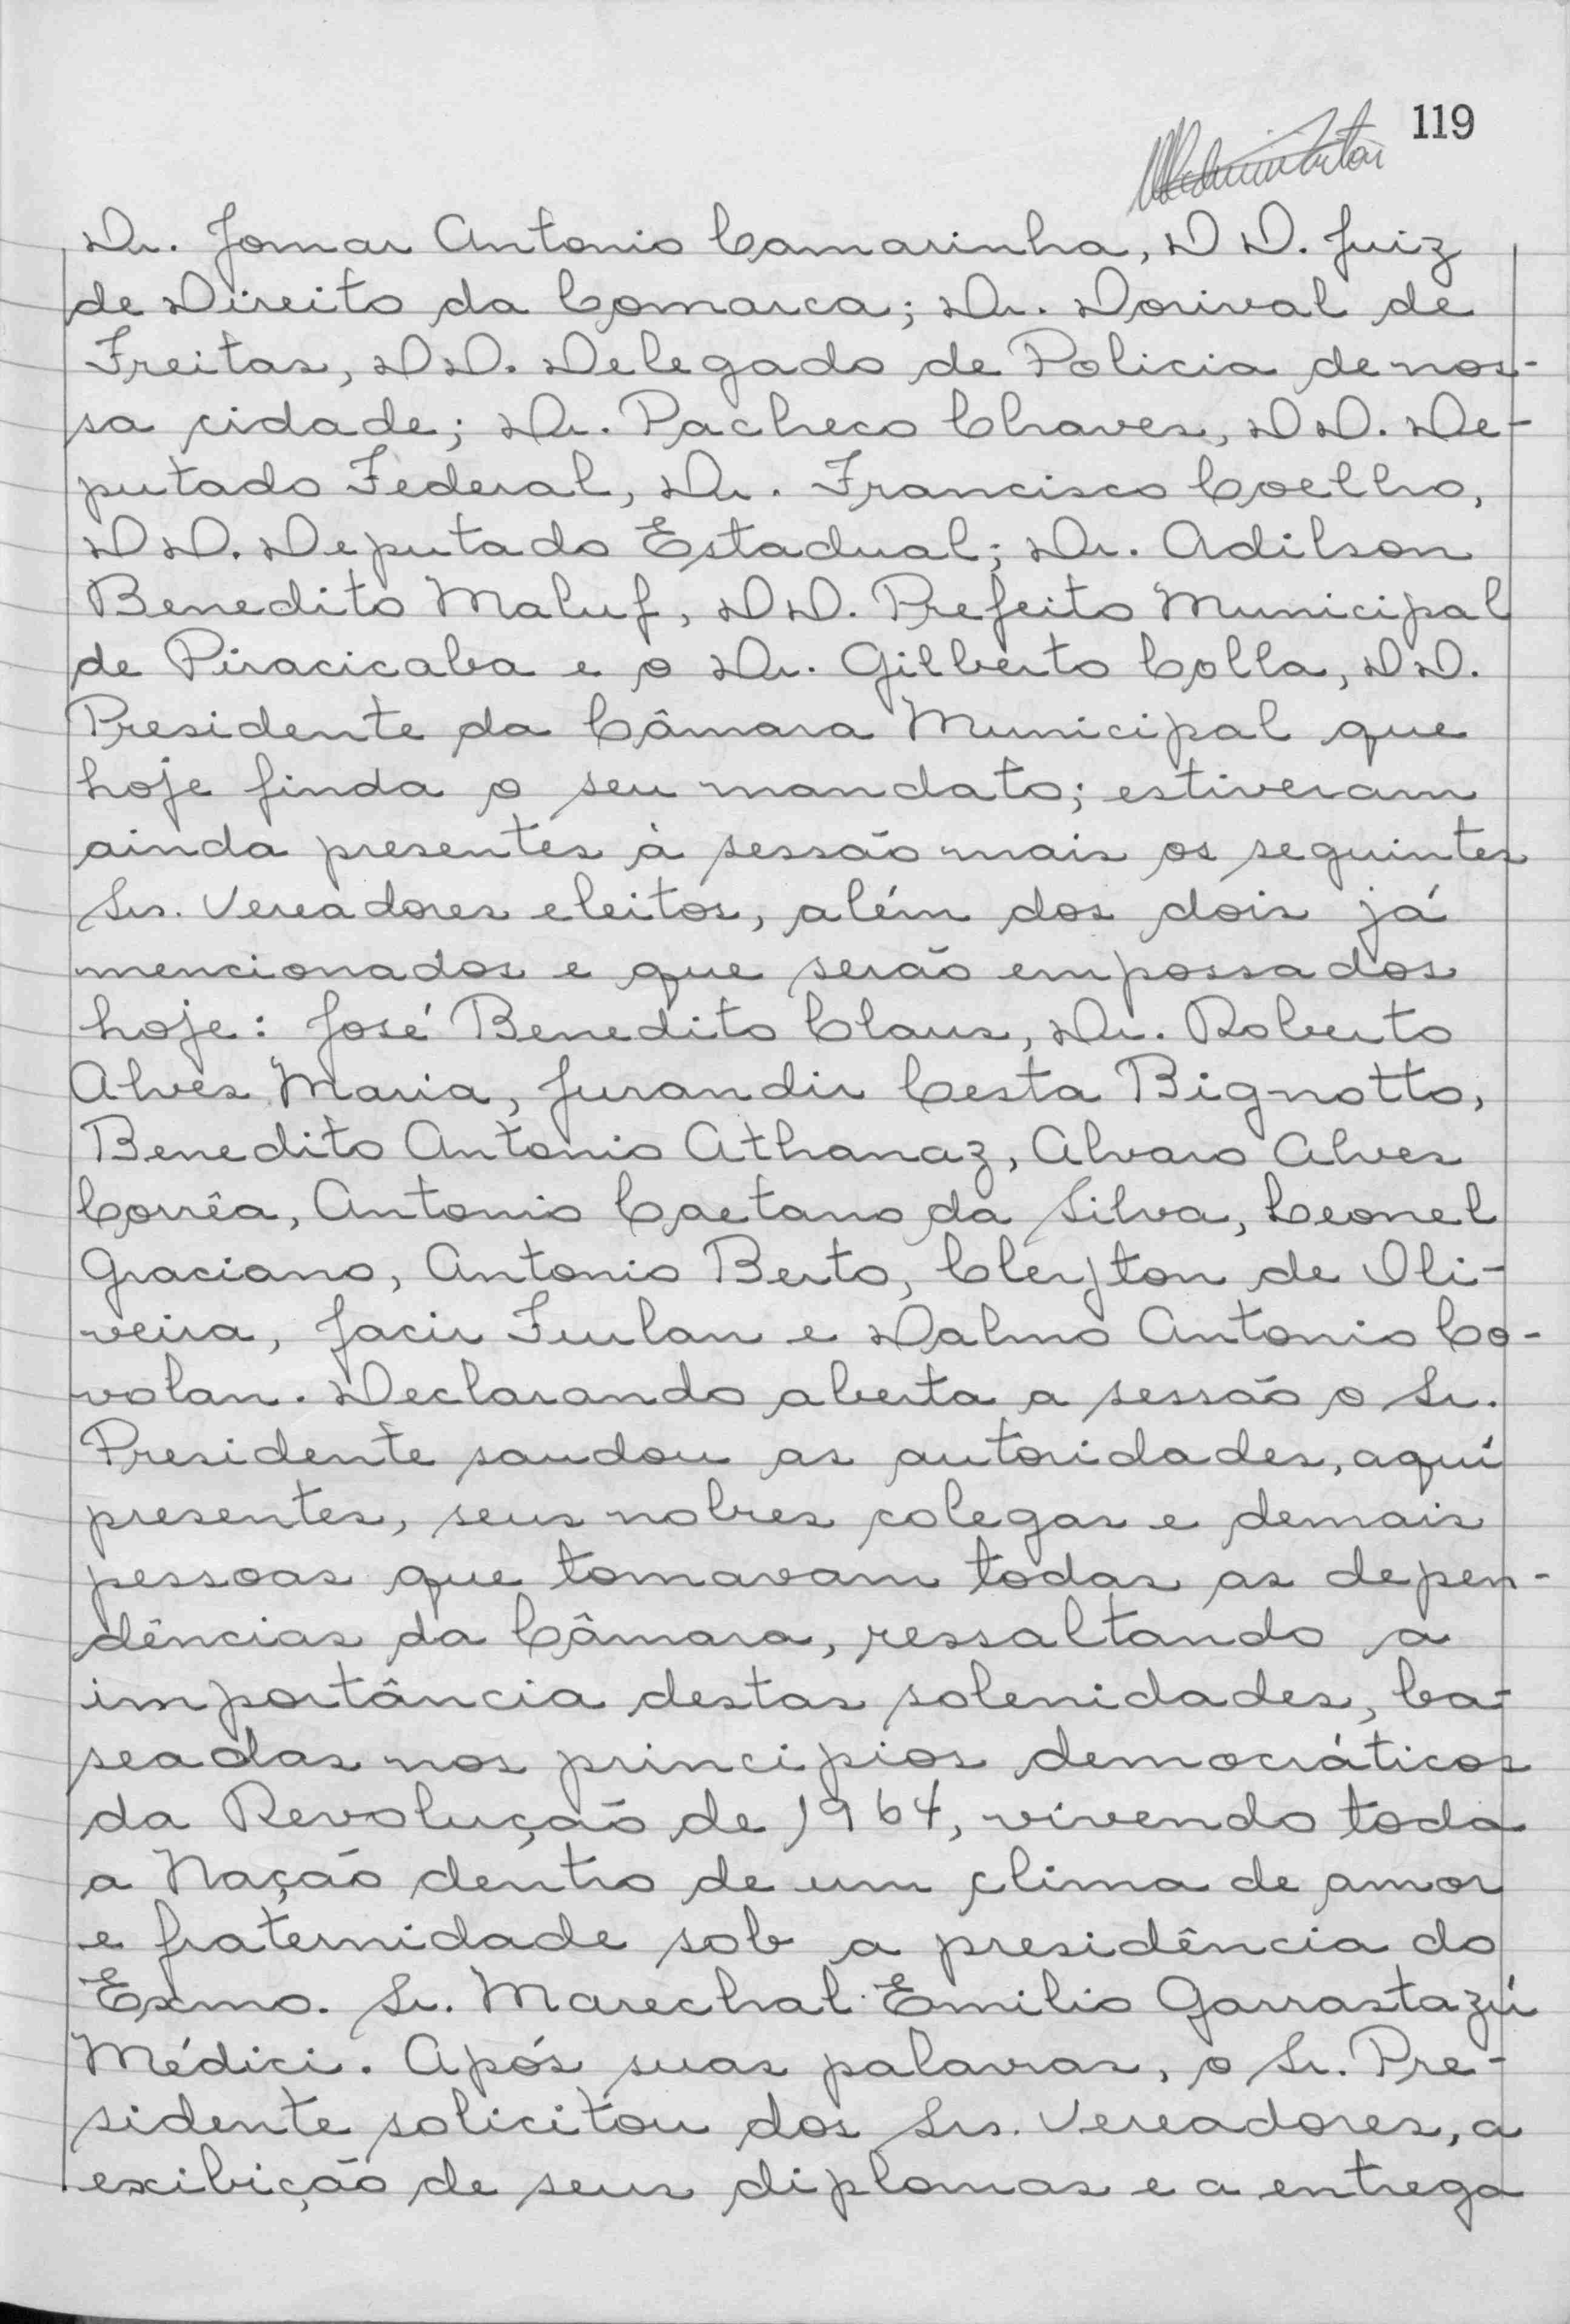 119
Dr. Jomar Antonio Camarinha, DD. Juiz
de Direito da Comarca; Dr. Dorival de
Freitas, DD. Delegado de Policia de nos-
sa cidade; Dr. Pacheco Chaves, DD. De-
putado Federal, Dr. Francisco Coelho,
DD. Deputado Estadual; Dr. Adilson
Benedito Maluf, DD. Prefeito Municipal
de Piracicaba e o Dr. Gilberto Colla, DD.
Presidente da Câmara Municipal que
hoje finda o seu mandato; estiveram
ainda presentes à sessão mais os seguintes
Srs. Vereadores eleitos, além dos dois já
mencionados e que serão empossados
hoje: José Benedito Claus, Dr. Roberto
Alves Maria, Jurandir Cesta Bignotto,
Benedito Antonio Athanaz, Alvaro Alves
Corrêa, Antonio Caetano da Silva, Leonel
Graciano, Antonio Berto, Cleyton de Oli-
veira, Jacir Furlan e Dalmo Antonio Co-
volan. Declarando aberta a sessão o Sr.
Presidente saudou as autoridades, aquí
presentes, seus nobres colegas e demais
pessoas que tomavam todas as depen-
dências da Câmara, ressaltando a
importância destas solenidades, ba-
seadas nos principios democráticos
da Revolução de 1964, vivendo toda
a Nação dentro de um clima de amor
e fraternidade sob a presidência do
Exmo. Sr. Marechal Emilio Garrastazú
Médici. Após suas palavras, o Sr. Pre-
sidente solicitou dos Srs. Vereadores, a
exibição de seus diplomas e a entrega